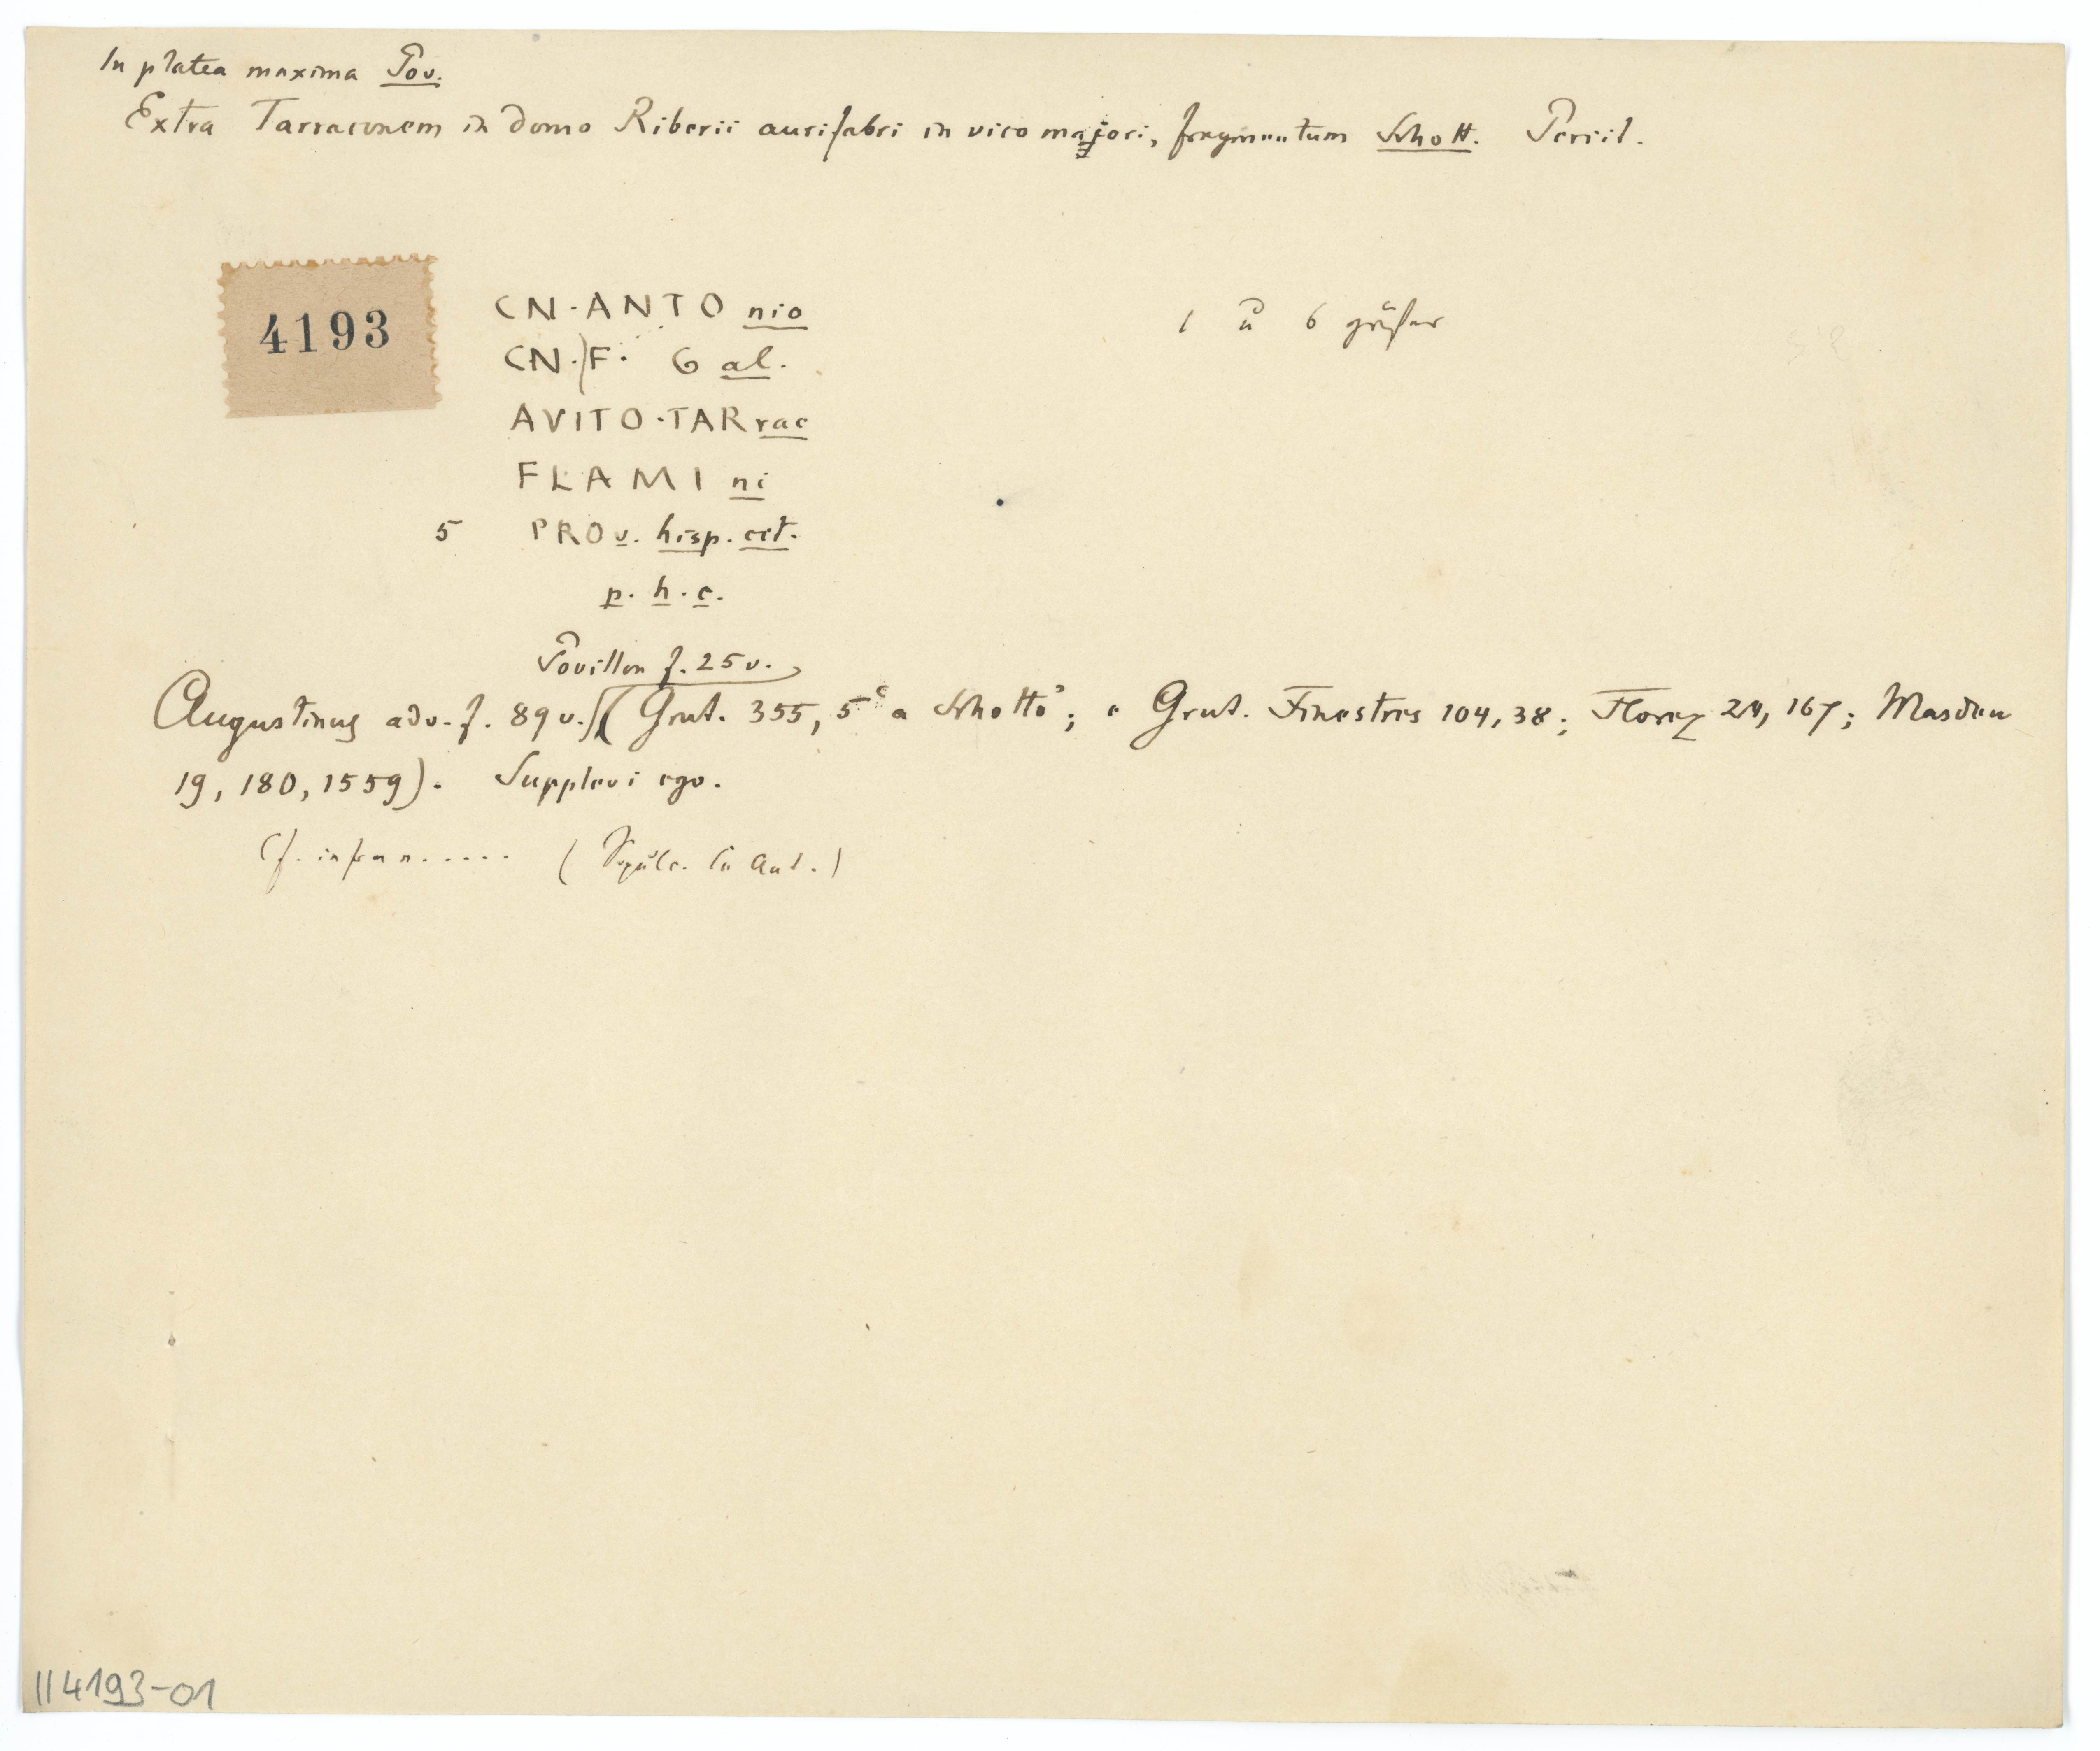 In platea maxima Pov.
Extra Tarraconem in domo Riberii aurifabri in vico majori, fragmentum Schott. Periit.
4193
CN·ANTO nio
1 u 6 größer
CN·F· G al.
AVITO·TAR rac
FLAMI ni
5 PRO v. hisp. cit.
p. h. c.
Povillon f. 25 v.
Augustinus adv. f. 89 v. (Grut. 355, 5 a Schotto; e Grut. Finestres 104, 38; Florez 24, 167; Masdeu
19, 180, 1559). Supplevi ego.
Cf. infra n. . . . . (Sepulc. Cn Ant.)
II 4193-01